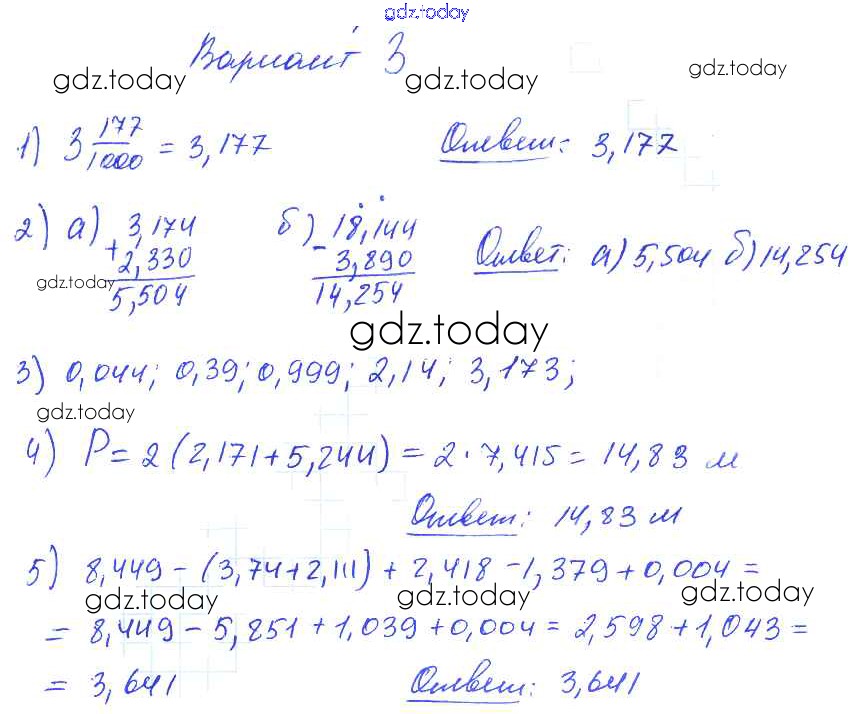 gdz.today
Вариант 3
gdz.today gdz.today
1) 3 177/1000 = 3,177 Ответ: 3,177
2) а) 3,174 б) 18,144
+ 2,330 - 3,890 Ответ: а) 5,504 б) 14,254
gdz.today 5,504 14,254
gdz.today
3) 0,044; 0,39; 0,999; 2,14; 3,173;
gdz.today
4) P = 2 (2,171 + 5,244) = 2 · 7,415 = 14,83 м
Ответ: 14,83 м
5) 8,449 - (3,74 + 2,111) + 2,418 - 1,379 + 0,004 =
gdz.today gdz.today gdz.today
= 8,449 - 5,851 + 1,039 + 0,004 = 2,598 + 1,043 =
= 3,641 Ответ: 3,641